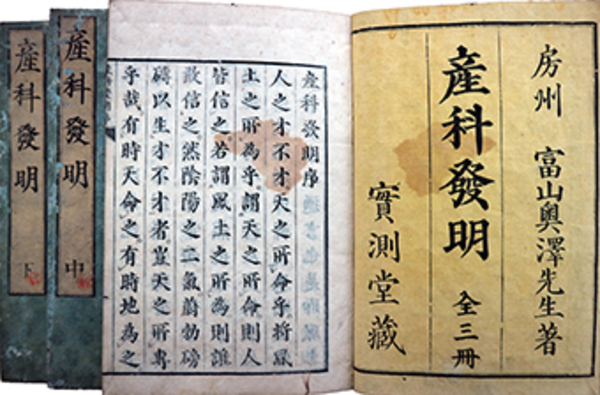 房州 富山奧澤先生著
產科發明 全三冊
實測堂藏
產科發明序
人之才不才天之所命乎將風
土之所為乎謂天之所命則人
皆信之若謂風土之所為則誰
敢信之然陰陽之二氣蔚勃磅
礴以生才不才者豈天之所專
乎哉有時天命之有時地為之
產科發明 中
產科發明 下